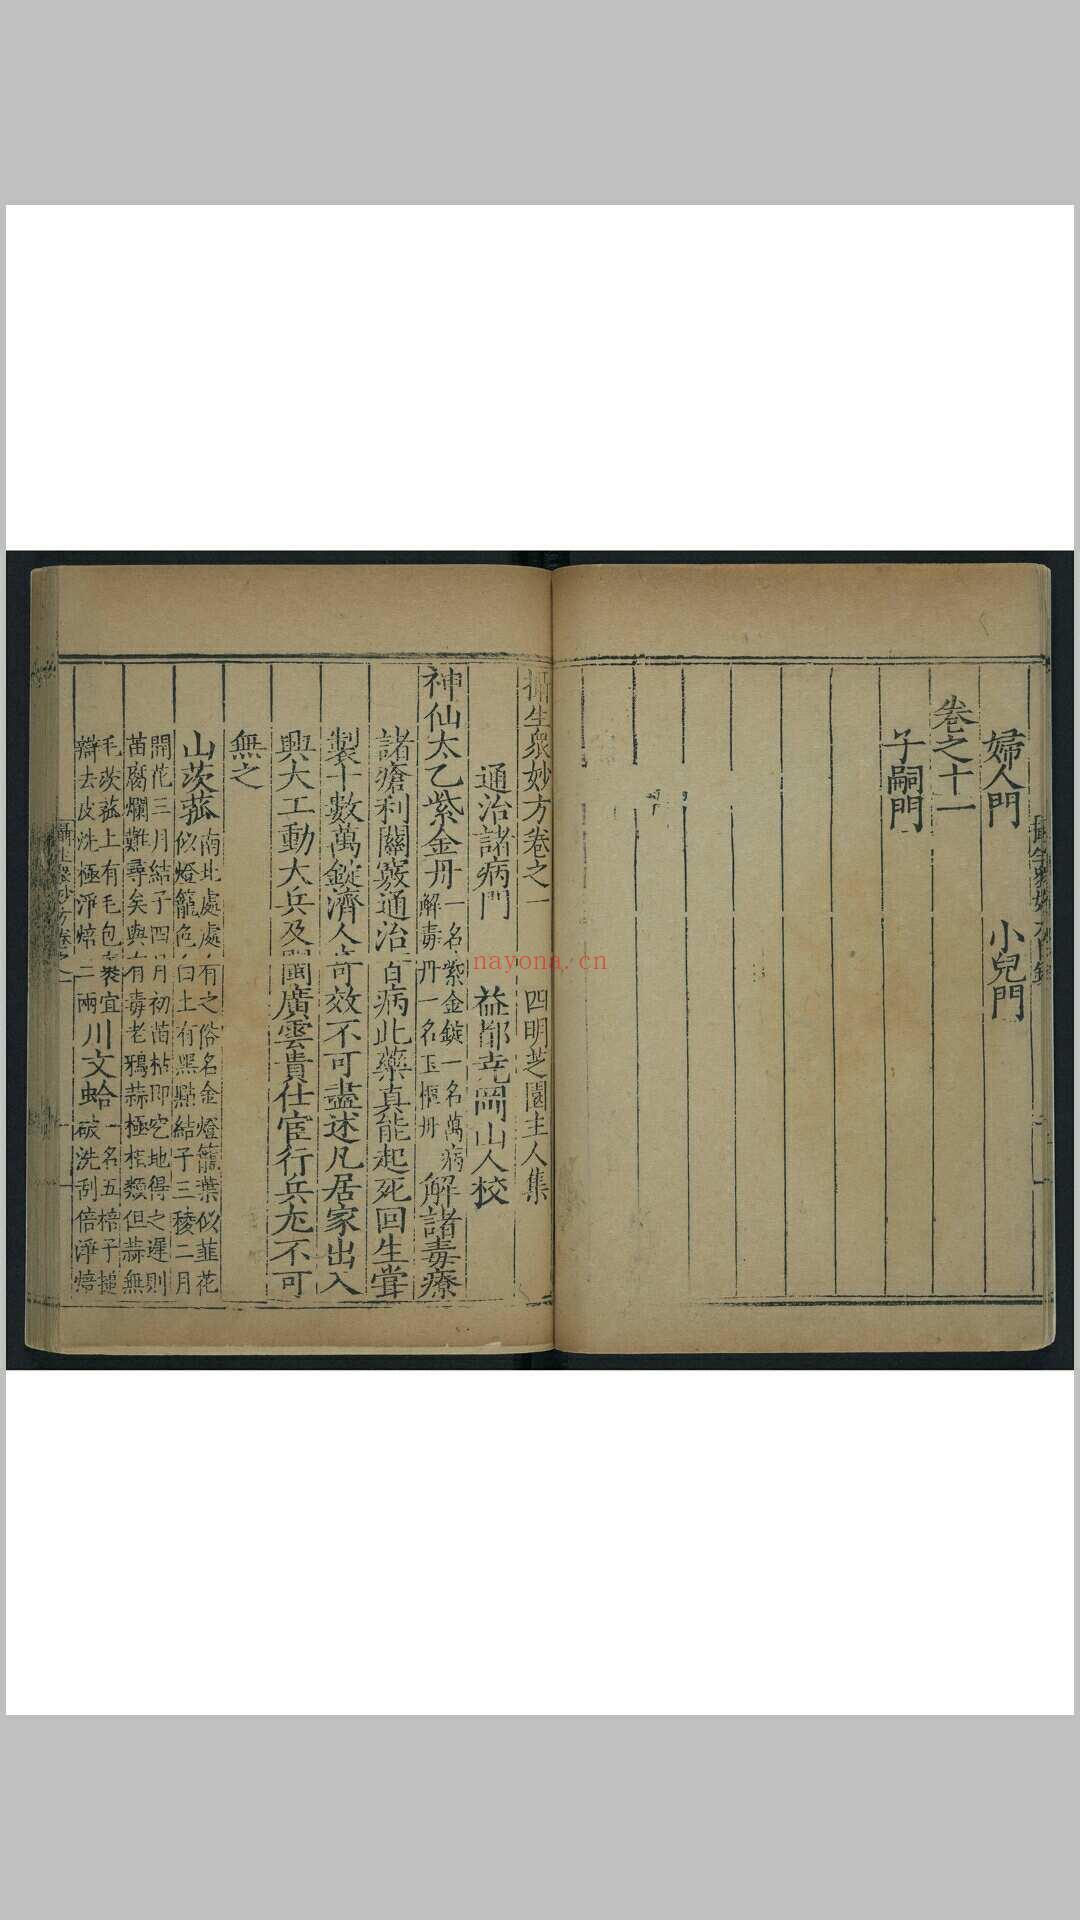 婦人門 小兒門
卷之十一
子嗣門
攝生衆妙方卷之一 四明芝園主人集
通治諸病門 益都堯岡山人校
神仙太乙紫金丹 一名紫金錠一名萬病解毒丹一名玉樞丹 解諸毒療
諸瘡利關竅通治百病此藥真能起死回生嘗
製十數萬錠濟人奇效不可盡述凡居家出入
興大工動大兵及閩廣雲貴仕宦行兵尤不可
無之
山茨菰 南北處處有之俗名金燈籠葉似韭花似燈籠色白上有黑點結子三稜二月
開花三月結子四月初苗枯即空地得之遲則苗腐爛難尋矣與有毒老鴉蒜極相類但蒜無
毛茨菰上有毛包裹宜辯去皮洗極淨焙二兩 川文蛤 一名五棓子搥破洗刮倍淨焙
nayona.cn